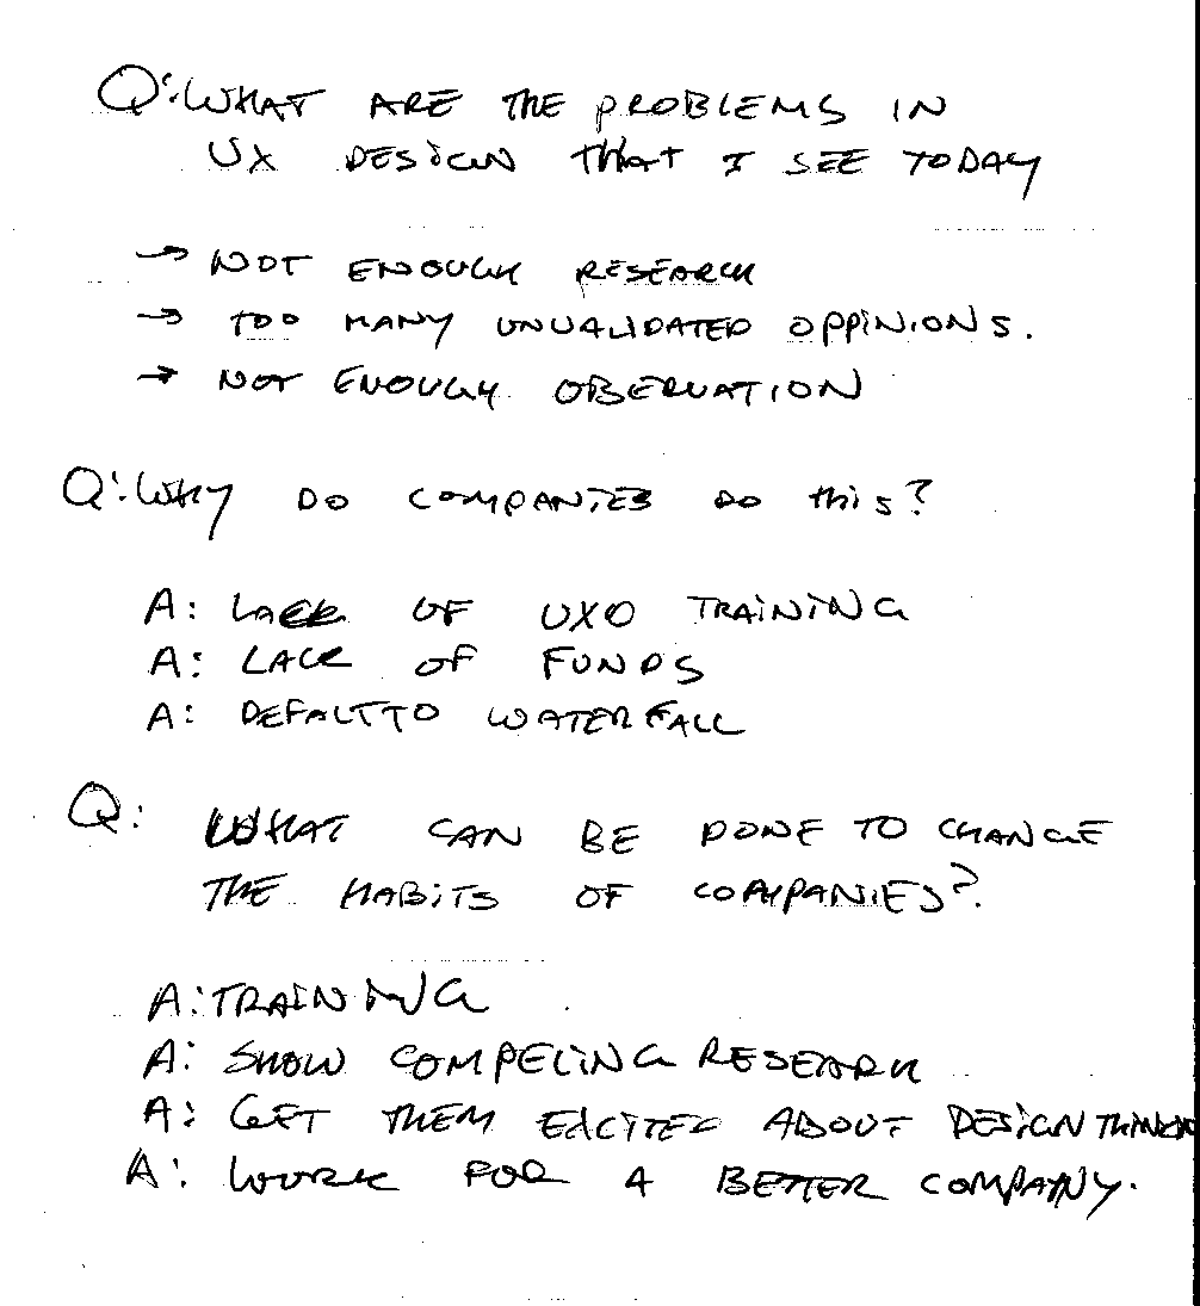 Q: WHAT ARE THE PROBLEMS IN
UX DESIGN THAT I SEE TODAY
→ NOT ENOUGH RESEARCH
→ TOO MANY UNVALIDATED OPPINIONS.
→ NOT ENOUGH OBSERVATION
Q: WHY DO COMPANIES DO this?
A: LACK OF UXD TRAINING
A: LACK OF FUNDS
A: DEFALT TO WATERFALL
Q: WHAT CAN BE DONE TO CHANGE
THE HABITS OF COMPANIES?
A: TRAINING
A: SHOW COMPELING RESEARCH
A: GET THEM EXCITED ABOUT DESIGN
A: WORK FOR A BETTER COMPANY.